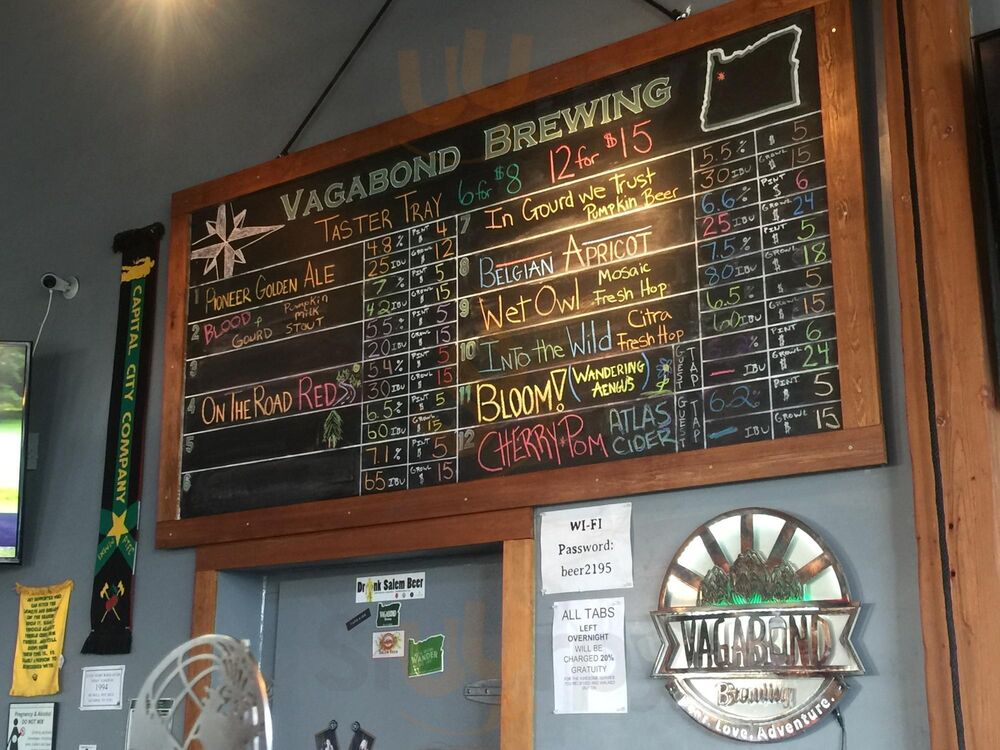 VAGABOND BREWING
TASTER TRAY 6 for $8 12 for $15
1 PIONEER GOLDEN ALE
4.8 % PINT $ 4
25 IBU GROWL $ 12
2 BLOOD & GOURD Pumpkin Milk STOUT
7 % PINT $ 5
42 IBU GROWL $ 15
3
5.5 % PINT $ 5
20 IBU GROWL $ 15
4 ON THE ROAD RED
5.4 % PINT $ 5
30 IBU GROWL $ 15
5
6.5 % PINT $ 5
60 IBU GROWL $ 15
6
7.1 % PINT $ 5
65 IBU GROWL $ 15
7 In Gourd We Trust
Pumpkin Beer
5.5 % $ 5
30 IBU GROWL $ 15
8 BELGIAN APRICOT
6.6 % PINT $ 6
25 IBU GROWL $ 24
9 Wet Owl Mosaic
Fresh Hop
7.5 % PINT $ 5
80 IBU GROWL $ 18
10 INTO the Wild Citra
Fresh Hop
6.5 % PINT $ 5
60 IBU GROWL $ 15
11 BLOOM! (WANDERING
AENGUS)
GUEST TAP
— IBU PINT $ 6
GROWL $ 24
12 CHERRY*POM ATLAS
CIDER
GUEST TAP
6.2 % PINT $ 5
— IBU GROWL $ 15
CAPITAL CITY COMPANY
WI-FI
Password:
beer2195
ALL TABS
LEFT
OVERNIGHT
WILL BE
CHARGED 20%
GRATUITY
Drink Salem Beer
WANDER
1994
Pregnancy & Alcohol
DO NOT MIX
VAGABOND
Brewing
Love. Adventure.